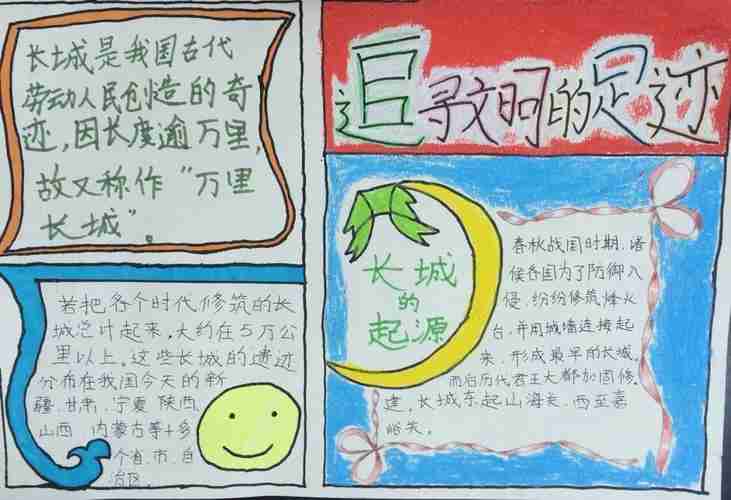 长城是我国古代
劳动人民创造的奇
迹，因长度逾万里，
故又称作“万里
长城”。
追寻文明的足迹
若把各个时代修筑的长
城总计起来，大约在5万公
里以上。这些长城的遗迹
分布在我国今天的新
疆、甘肃、宁夏、陕西、
山西、内蒙古等十多
个省、市、自
治区。
长城
的
起源
春秋战国时期、诸
侯各国为了防御入
侵，纷纷修筑烽火
台，并用城墙连接起
来，形成最早的长城。
而后历代君王大都加固修
建，长城东起山海关，西至嘉
峪关。